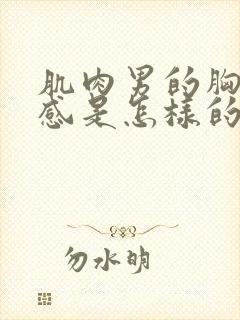 肌肉男的胸
感是怎样的
勿水明